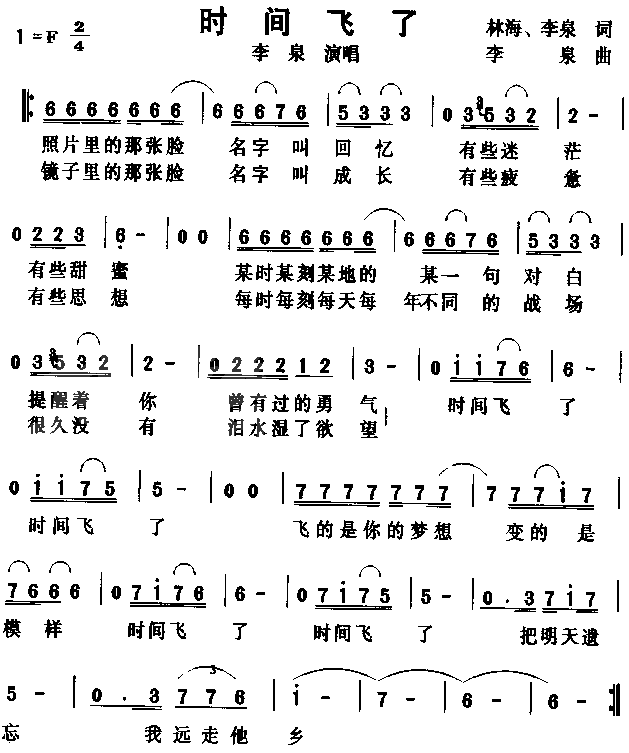 时间飞了
1=F 2/4
林海、李泉 词
李泉 演唱
李泉 曲
6666666 | 66676 | 5333 | 03532 | 2-
照片里的那张脸 名字叫回忆 有些迷茫
镜子里的那张脸 名字叫成长 有些疲惫
0223 | 6- | 00 | 6666666 | 66676 | 5333
有些甜蜜 某时某刻某地的 某一句对白
有些思想 每时每刻每天每 年不同的战场
03532 | 2- | 0222212 | 3- | 0i i76 | 6-
提醒着你 曾有过的勇气 时间飞了
很久没有 泪水湿了欲望
0i i75 | 5- | 00 | 7777777 | 777i7
时间飞了 飞的是你的梦想 变的是
7666 | 07i76 | 6- | 07i75 | 5- | 0.37i7
模样 时间飞了 时间飞了 把明天遗
5- | 0.3776 | i- | 7- | 6- | 6-
3
忘 我远走他乡